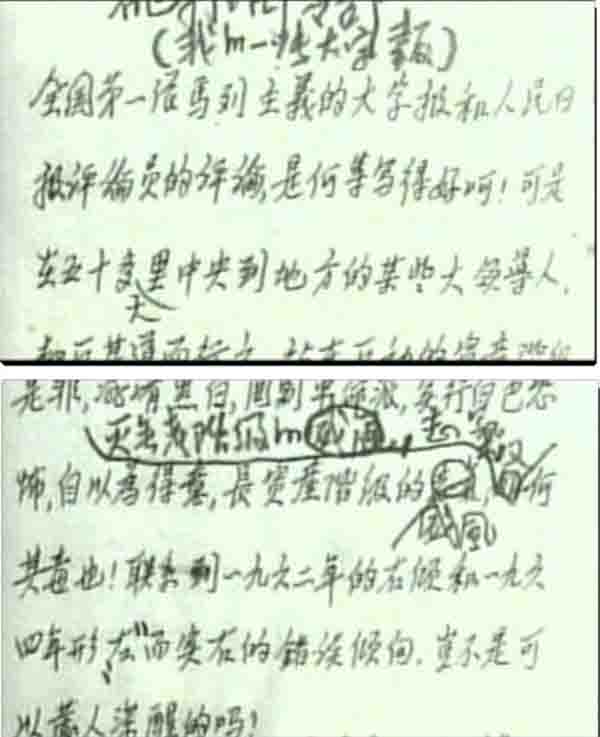 (我的一张大字報)
全国第一张马列主義的大字报和人民日
报评论员的评论,是何等写得好呵!可是
在五十多里中央到地方的某些大领导人,
天
却反其道而行之,
是非,混淆黑白,围剿革命派,实行白色恐
灭无產階级的威风,志氣
怖,自以為得意,長資產階级的 何
威風
其毒也!联系到一九六二年的右倾和一九六
四年形"左"而实右的错误倾向,豈不是可
以发人深醒的吗!